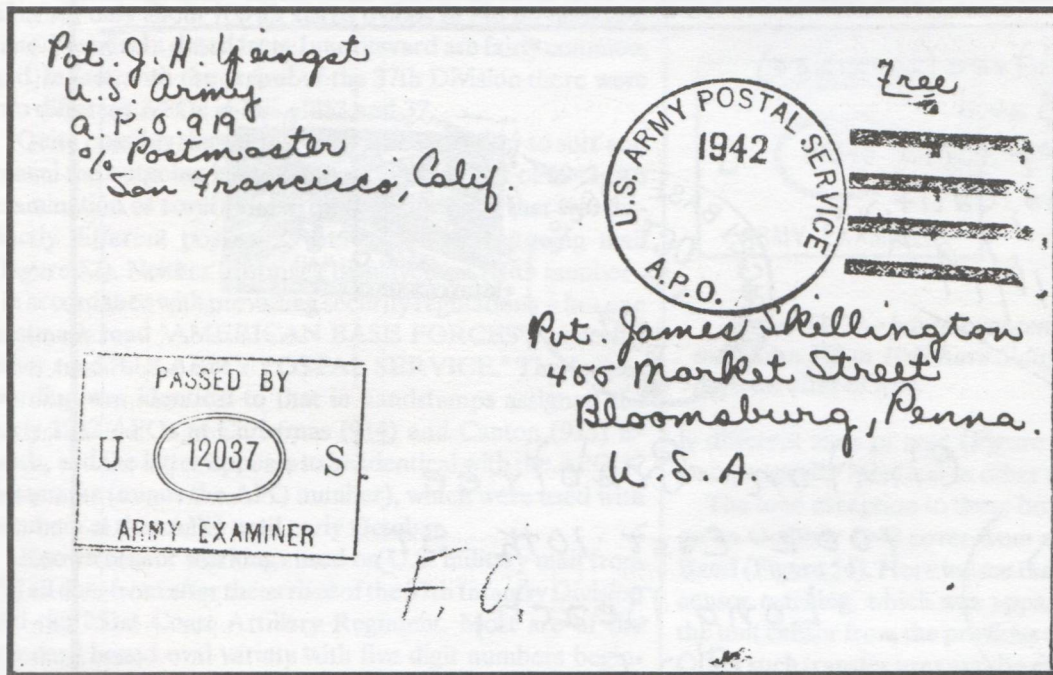 Pvt. J. H. Yeingst
U. S. Army
A. P. O. 919
c/o Postmaster
San Francisco, Calif.
Free
U.S. ARMY POSTAL SERVICE
1942
A.P.O.
Pvt. James Skillington
405 Market Street
Bloomsburg, Penna.
U. S. A.
PASSED BY
U 12037 S
ARMY EXAMINER